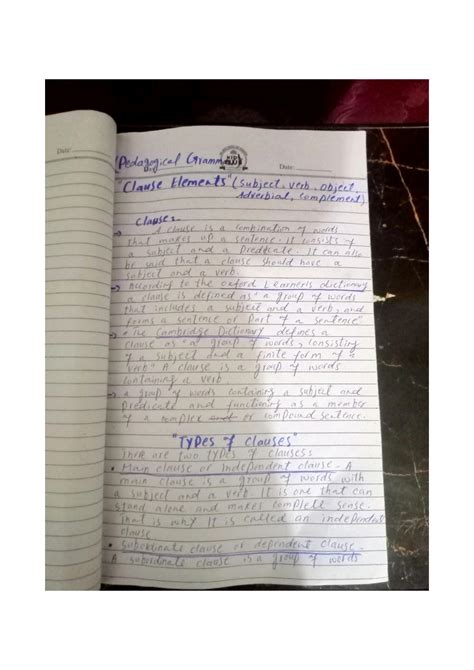 Date:
Pedagogical Grammar
Date:
"Clause Elements" (subject, verb, object,
Adverbial, complement)
Clauses.
→ A clause is a combination of words
that makes up a sentence. it consists of
a subject and a Predicate. It can also
be said that a clause should have a
subject and a verb.
→ According to the oxford Learner's dictionary
a clause is defined as "a group of words
that includes a subject and a verb, and
forms a sentence or Part of a sentence"
→ The Cambridge Dictionary defines a
clause as "a group of words, consisting
of a subject and a finite form of a
verb" A clause is a group of words
containing a verb.
→ a group of words containing a subject and
Predicate and functioning as a member
of a complex or compound sentence.
"Types of clauses"
There are two types of clauses:
• Main clause or independent clause. A
main clause is a group of words with
a subject and a verb. It is one that can
stand alone and makes complete sense.
That is why It is called an independent
clause
• subordinate clause or dependent clause.
A subordinate clause is a group of words